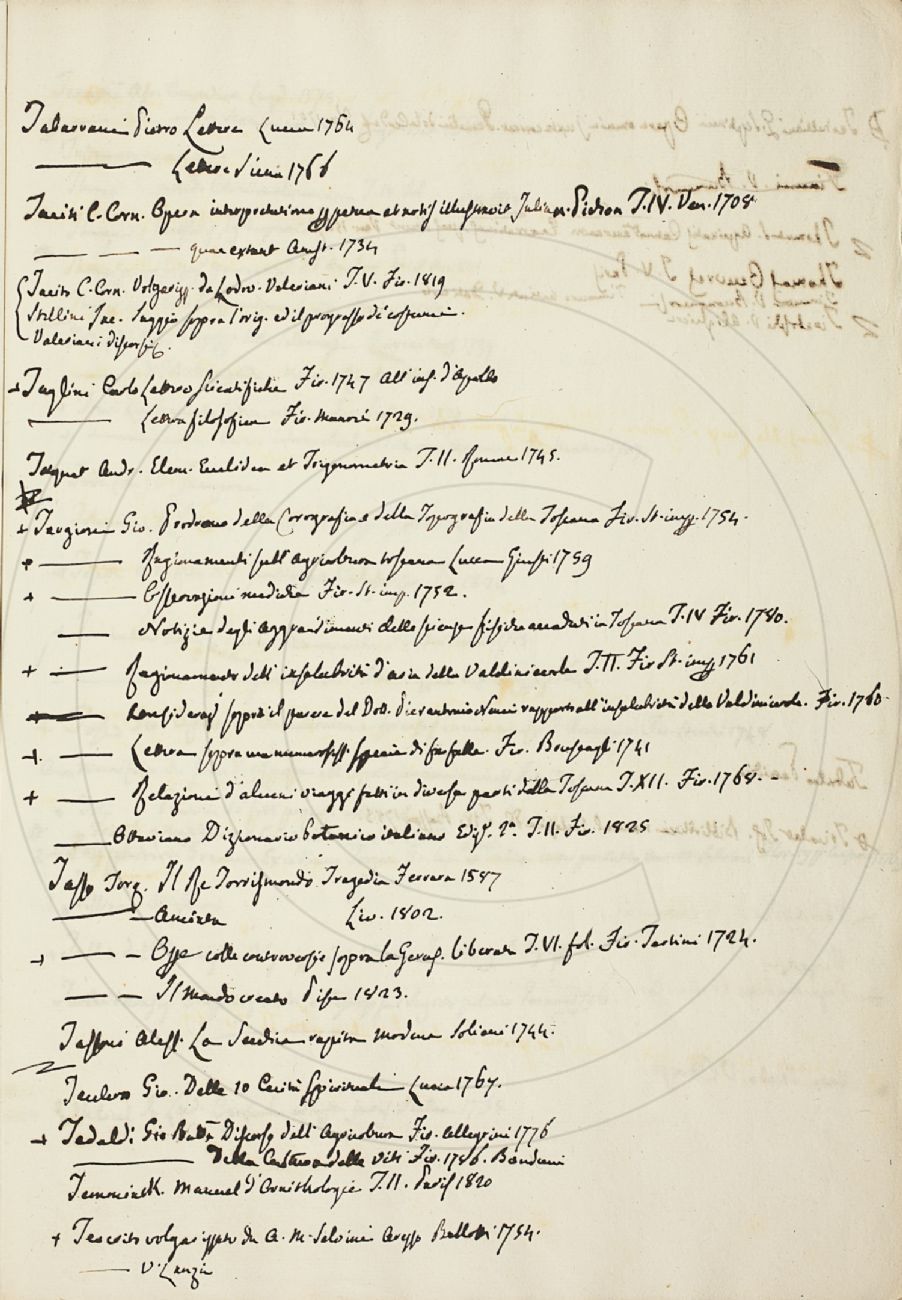 Tabarrani Pietro Lettera Lucca 1764
——— Lettera Siena 1766
Taciti C. Corn. Opera interpretatione perpetua et notis illustravit Julian. Pichon T. IV. Ven. 1708
— — — quae extant Amst. 1734
Tacito C. Corn. Volgarizz. da Lodov. Valeriani T. V. Fir. 1819
Stellini Jac. Saggio sopra l'orig. ed il progresso de' costumi.
Valeriani discorsi
+ Taglini Carlo Lettere Scientifiche Fir. 1747 All' ins. d'Apollo
——— Lettera filosofica Fir. Manni 1729.
Taquet Andr. Elem. Euclidea et Trigonometria T. II. Romae 1745.
+ Targioni Gio. Prodromo della Corografia e della Topografia della Toscana Fir. St. imp. 1754.
+ ——— Ragionamenti sull' Agricoltura toscana Lucca Giusti 1759
+ ——— Osservazioni mediche Fir. St. imp. 1752.
——— Notizie degli aggrandimenti delle scienze fisiche accaduti in Toscana T. IV Fir. 1780.
+ ——— Ragionamento dell' insalubrità d'aria della Valdinievole T. II. Fir St. imp 1761
+ ——— sopra il parere del Dott. Pierantonio Nucci rapporto all' insalubrità della Valdinievole. Fir. 1760
+ ——— Lettera sopra una numerosiss. specie di farfalle. Fir. 1741
+ ——— Relazioni d'alcuni viaggi fatti in diverse parti della Toscana T. XII. Fir. 1768.
——— Ottaviano Dizionario botanico italiano Ediz. 2a. T. II. Fir. 1825
Tasso Torq. Il Re Torrismondo Tragedia Ferrara 1587
——— Aminta Liv. 1802.
+ ——— Opere colle controversie sopra la Gerus. liberata T. VI. fol. Fir. Tartini 1724.
——— Il Mondo creato Pisa 1823.
Tassoni Aless. La Secchia rapita Modena Soliani 1744.
Taulero Gio. Delle 10 Cecità Spirituali Lucca 1767.
+ Tedaldi Gio Batta Discorso dell' Agricoltura Fir. Allegrini 1776
——— Della Coltura delle viti Fir. 1786.
Temminck. Manuel d'Ornithologie T. II. Paris 1820
+ Teocrito volgarizzato da A. M. Salvini Arezzo Bellotti 1754.
——— V. Lanzi